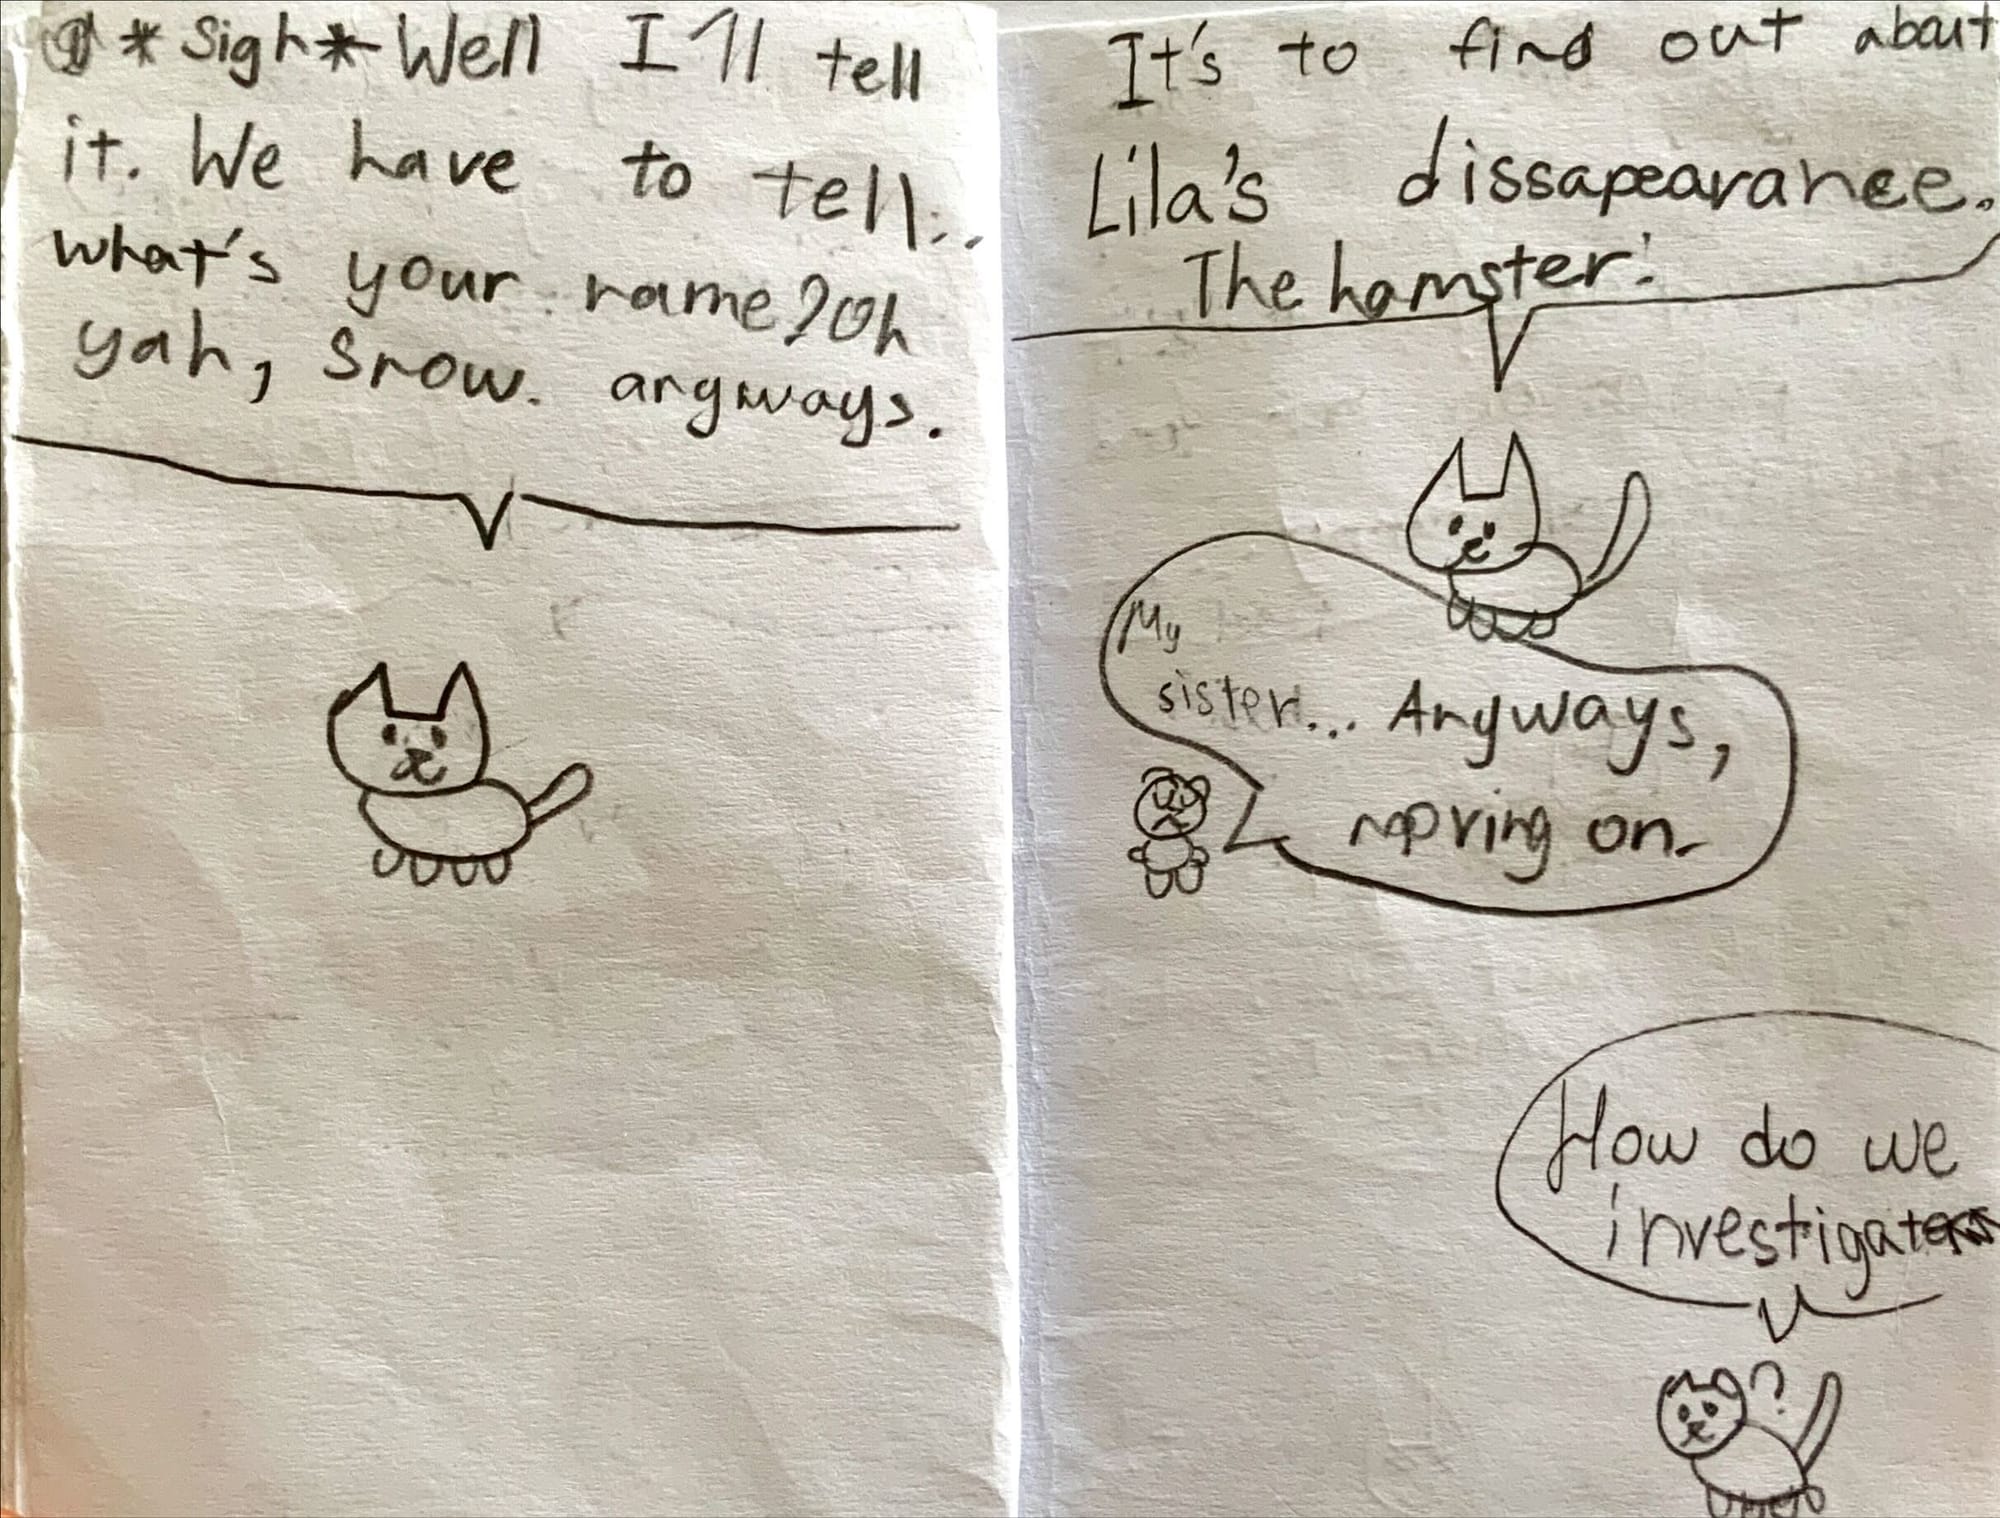 *Sigh* Well I'll tell
it. We have to tell...
what's your name? Oh
yah, Snow. anyways.
It's to find out about
Lila's dissapearance.
The hamster!
My
sister... Anyways,
moving on.
How do we
investigate
?